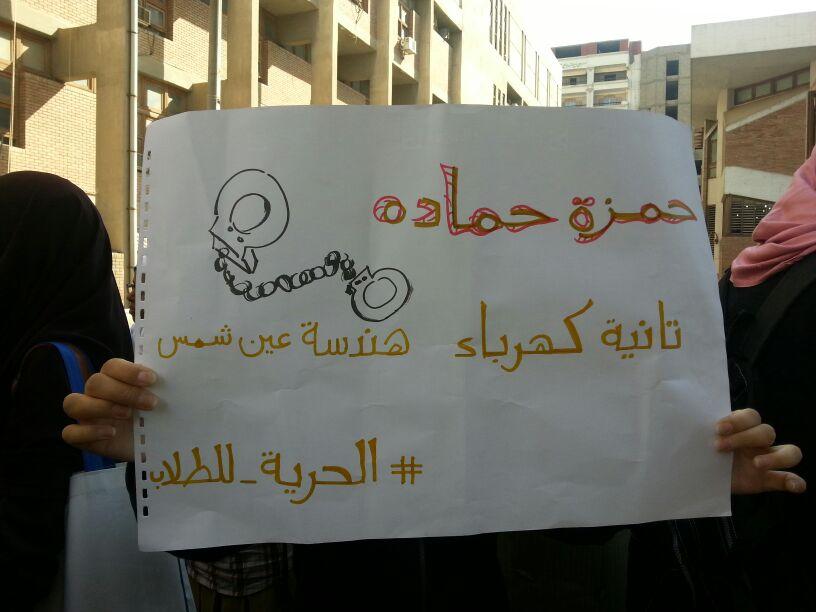 حمزة حماده
تانية كهرباء هندسة عين شمس
# الحرية_للطلاب